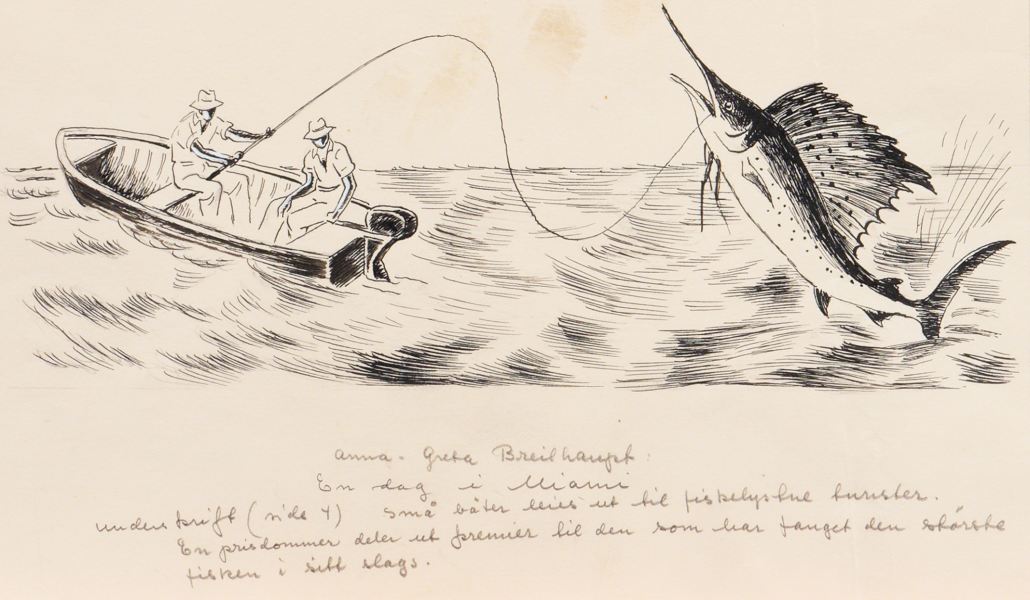 Anna-Greta Breilhaupt:
En dag i Miami
underskrift (side 4) små båter leies ut til fiskelystne turister.
En prisdommer deler ut premier til den som har fanget den største
fisken i sitt slags.